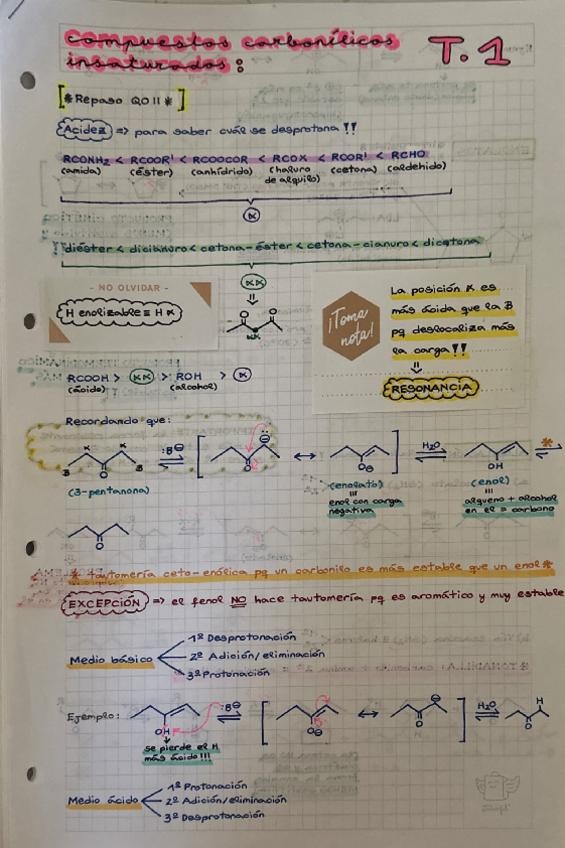 Compuestos carbonílicos T. 1
insaturados:
[*Repaso QOII*]
Acidez => para saber cuál se desprotona !!
RCONH2 < RCOOR' < RCOOCOR < RCOX < RCOR' < RCHO
(amida) (éster) (anhídrido) (haluro de alquilo) (cetona) (aldehido)
α
!! diéster < dicianuro < cetona-éster < cetona-cianuro < dicetona
αα
- NO OLVIDAR -
H enolizable ≡ H α
αα
¡Toma nota!
La posición α es
más ácida que la β
pq deslocaliza más
la carga !!
RESONANCIA
RCOOH > αα > ROH > α
(ácido) (alcohol)
Recordando que:
α α :B⊖ ⊖
β O β O O⊖ H2O OH *
(3-pentanona) (enolato) (enol)
enol con carga
negativa
alqueno + alcohol
en el = carbono
O
* tautomería ceto-enólica pq un carbonilo es más estable que un enol *
EXCEPCIÓN => el fenol NO hace tautomería pq es aromático y muy estable
Medio básico
1º Desprotonación
2º Adición/eliminación
3º Protonación
Ejemplo: :B⊖ ⊖ H2O H
OH O⊖ O O
se pierde el H
más ácido !!!
Medio ácido
1º Protonación
2º Adición/eliminación
3º Desprotonación